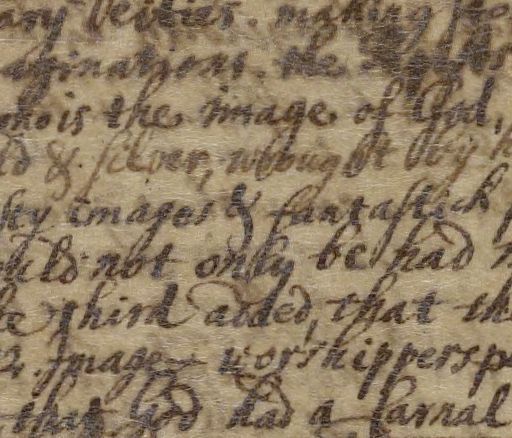 ary deities. making the
aginations. the
who is the image of God,
ld & silver, wrought by
sty images & fantastick
ould not only be had
he third added, that th
Image worshippers
that God had a carnal